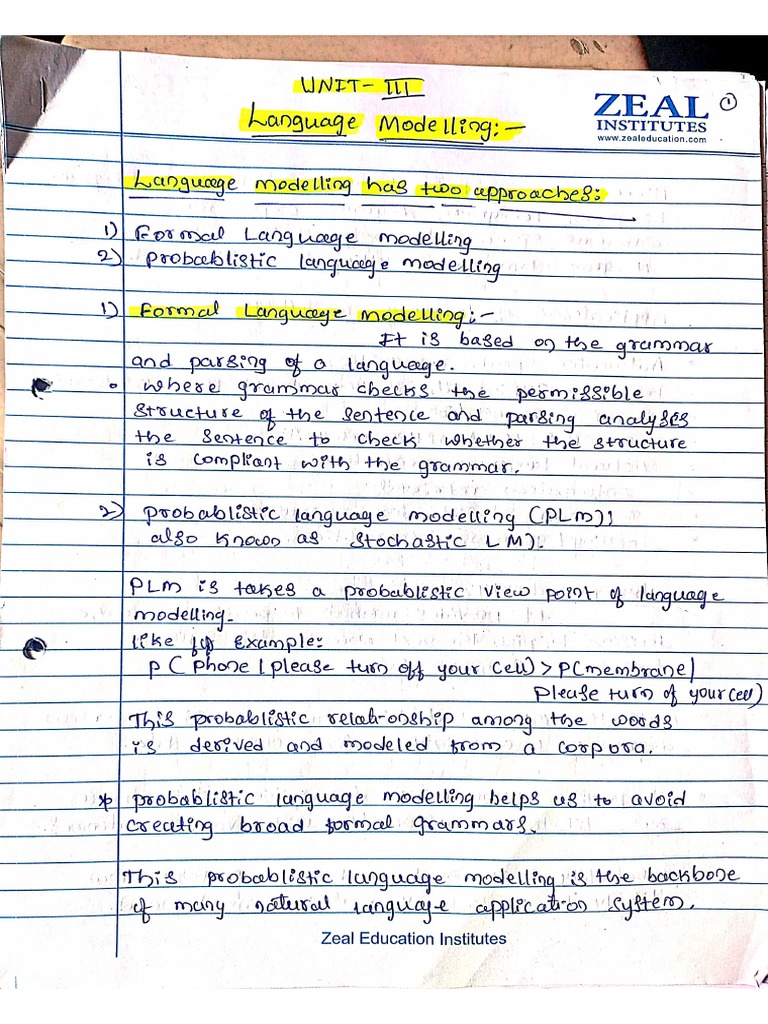 UNIT-III
ZEAL
INSTITUTES
www.zealeducation.com
1
Language Modelling:-
Language modelling has two approaches:
1) Formal Language modelling
2) probablistic language modelling
1) Formal Language modelling:-
It is based on the grammar
and parsing of a language.
where grammar checks the permissible
structure of the sentence and parsing analyses
the sentence to check whether the structure
is compliant with the grammar.
2) probablistic language modelling (PLM);
also known as stochastic LM).
PLM is takes a probablistic view point of language
modelling.
like for Example:
P(phone|please turn off your cell)>P(membrane|
please turn of your cell)
This probablistic relationship among the words
is derived and modeled from a corpora.
* probablistic language modelling helps us to avoid
creating broad formal grammars.
This probablistic language modelling is the backbone
of many natural language application system.
Zeal Education Institutes